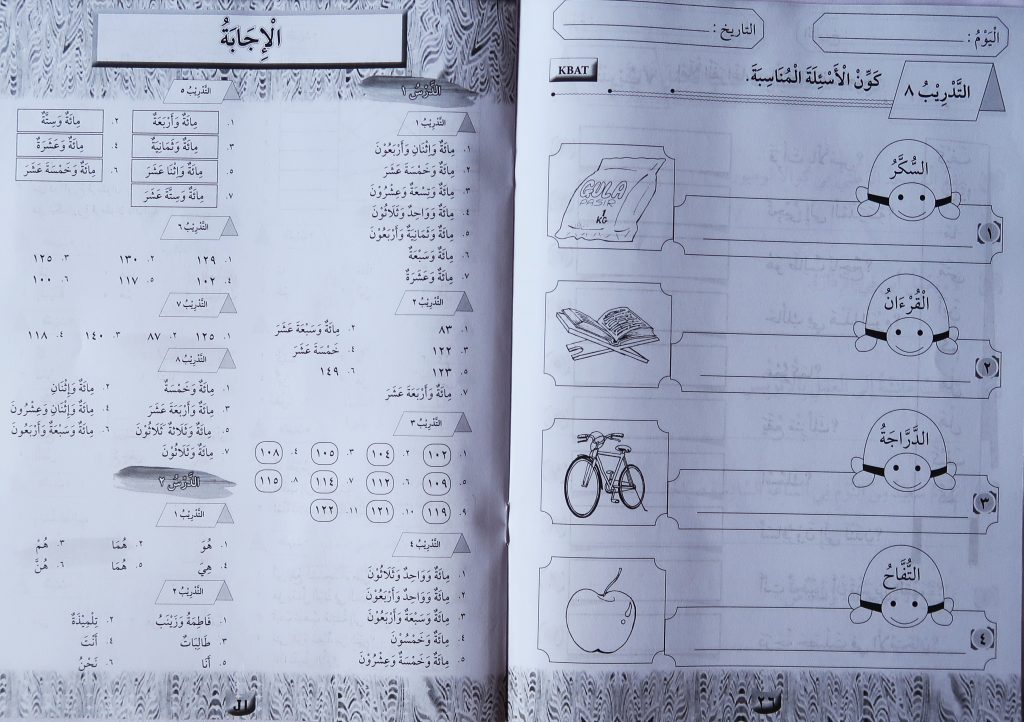 الْيَوْمُ :
التاريخ :
التَّدْرِيْبُ ٨
كَوِّنْ الْأَسْئِلَةَ الْمُنَاسِبَةَ.
KBAT
السُّكَّرُ
GULA
PASIR
1
KG
١
الْقُرْءَانُ
٢
الدَّرَّاجَةُ
٣
التُّفَّاحُ
٤
الْإِجَابَةُ
الدَّرْسُ ١
التَّدْرِيْبُ ١
١. مِائَةٌ وَاثْنَانِ وَأَرْبَعُوْنَ
٢. مِائَةٌ وَخَمْسَةَ عَشَرَ
٣. مِائَةٌ وَتِسْعَةٌ وَعِشْرُوْنَ
٤. مِائَةٌ وَوَاحِدٌ وَثَلَاثُوْنَ
٥. مِائَةٌ وَثَمَانِيَةٌ وَأَرْبَعُوْنَ
٦. مِائَةٌ وَسَبْعَةٌ
٧. مِائَةٌ وَعَشَرَةٌ
التَّدْرِيْبُ ٢
١. ٨٣ ٢. مِائَةٌ وَسَبْعَةَ عَشَرَ
٣. ١٢٢ ٤. خَمْسَةَ عَشَرَ
٥. ١٢٣ ٦. ١٤٩
٧. مِائَةٌ وَأَرْبَعَةَ عَشَرَ
التَّدْرِيْبُ ٣
١. ١٠٢ ٢. ١٠٤ ٣. ١٠٥ ٤. ١٠٨
٥. ١٠٩ ٦. ١١٢ ٧. ١١٤ ٨. ١١٥
٩. ١١٩ ١٠. ١٢١ ١١. ١٢٢
التَّدْرِيْبُ ٤
١. مِائَةٌ وَوَاحِدٌ وَثَلَاثُوْنَ
٢. مِائَةٌ وَوَاحِدٌ وَأَرْبَعُوْنَ
٣. مِائَةٌ وَسَبْعَةٌ وَأَرْبَعُوْنَ
٤. مِائَةٌ وَخَمْسُوْنَ
٥. مِائَةٌ وَخَمْسَةٌ وَعِشْرُوْنَ
التَّدْرِيْبُ ٥
١. مِائَةٌ وَأَرْبَعَةٌ ٢. مِائَةٌ وَسِتَّةٌ
٣. مِائَةٌ وَثَمَانِيَةٌ ٤. مِائَةٌ وَعَشَرَةٌ
٥. مِائَةٌ وَإِثْنَا عَشَرَ ٦. مِائَةٌ وَخَمْسَةَ عَشَرَ
٧. مِائَةٌ وَسِتَّةَ عَشَرَ
التَّدْرِيْبُ ٦
١. ١٢٩ ٢. ١٣٠ ٣. ١٢٥
٤. ١٠٢ ٥. ١١٧ ٦. ١٠٠
التَّدْرِيْبُ ٧
١. ١٢٥ ٢. ٨٧ ٣. ١٤٠ ٤. ١١٨
التَّدْرِيْبُ ٨
١. مِائَةٌ وَخَمْسَةٌ ٢. مِائَةٌ وَإِثْنَانِ
٣. مِائَةٌ وَأَرْبَعَةَ عَشَرَ ٤. مِائَةٌ وَإِثْنَانِ وَعِشْرُوْنَ
٥. مِائَةٌ وَثَلَاثَةٌ وَثَلَاثُوْنَ ٦. مِائَةٌ وَسَبْعَةٌ وَأَرْبَعُوْنَ
٧. مِائَةٌ وَثَلَاثُوْنَ
الدَّرْسُ ٢
التَّدْرِيْبُ ١
١. هُوَ ٢. هُمَا ٣. هُمْ
٤. هِيَ ٥. هُمَا ٦. هُنَّ
التَّدْرِيْبُ ٢
١. فَاطِمَةُ وَزَيْنَبُ ٢. تِلْمِيْذَةٌ
٣. طَالِبَاتٌ ٤. أَنْتَ
٥. أَنَا ٦. نَحْنُ